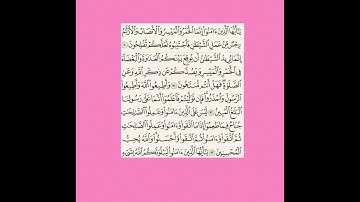 يَٰٓأَيُّهَا ٱلَّذِينَ ءَامَنُوٓا۟ إِنَّمَا ٱلْخَمْرُ وَٱلْمَيْسِرُ وَٱلْأَنصَابُ وَٱلْأَزْلَٰمُ
رِجْسٌ مِّنْ عَمَلِ ٱلشَّيْطَٰنِ فَٱجْتَنِبُوهُ لَعَلَّكُمْ تُفْلِحُونَ ٩٠
إِنَّمَا يُرِيدُ ٱلشَّيْطَٰنُ أَن يُوقِعَ بَيْنَكُمُ ٱلْعَدَٰوَةَ وَٱلْبَغْضَآءَ
فِى ٱلْخَمْرِ وَٱلْمَيْسِرِ وَيَصُدَّكُمْ عَن ذِكْرِ ٱللَّهِ وَعَنِ
ٱلصَّلَوٰةِ فَهَلْ أَنتُم مُّنتَهُونَ ٩١ وَأَطِيعُوا۟ ٱللَّهَ وَأَطِيعُوا۟
ٱلرَّسُولَ وَٱحْذَرُوا۟ فَإِن تَوَلَّيْتُمْ فَٱعْلَمُوٓا۟ أَنَّمَا عَلَىٰ رَسُولِنَا
ٱلْبَلَٰغُ ٱلْمُبِينُ ٩٢ لَيْسَ عَلَى ٱلَّذِينَ ءَامَنُوا۟ وَعَمِلُوا۟ ٱلصَّٰلِحَٰتِ
جُنَاحٌ فِيمَا طَعِمُوٓا۟ إِذَا مَا ٱتَّقَوا۟ وَّءَامَنُوا۟ وَعَمِلُوا۟ ٱلصَّٰلِحَٰتِ
ثُمَّ ٱتَّقَوا۟ وَّءَامَنُوا۟ ثُمَّ ٱتَّقَوا۟ وَّأَحْسَنُوا۟ وَٱللَّهُ يُحِبُّ
ٱلْمُحْسِنِينَ ٩٣ يَٰٓأَيُّهَا ٱلَّذِينَ ءَامَنُوا۟ لَيَبْلُوَنَّكُمُ ٱللَّهُ بِشَىْءٍ